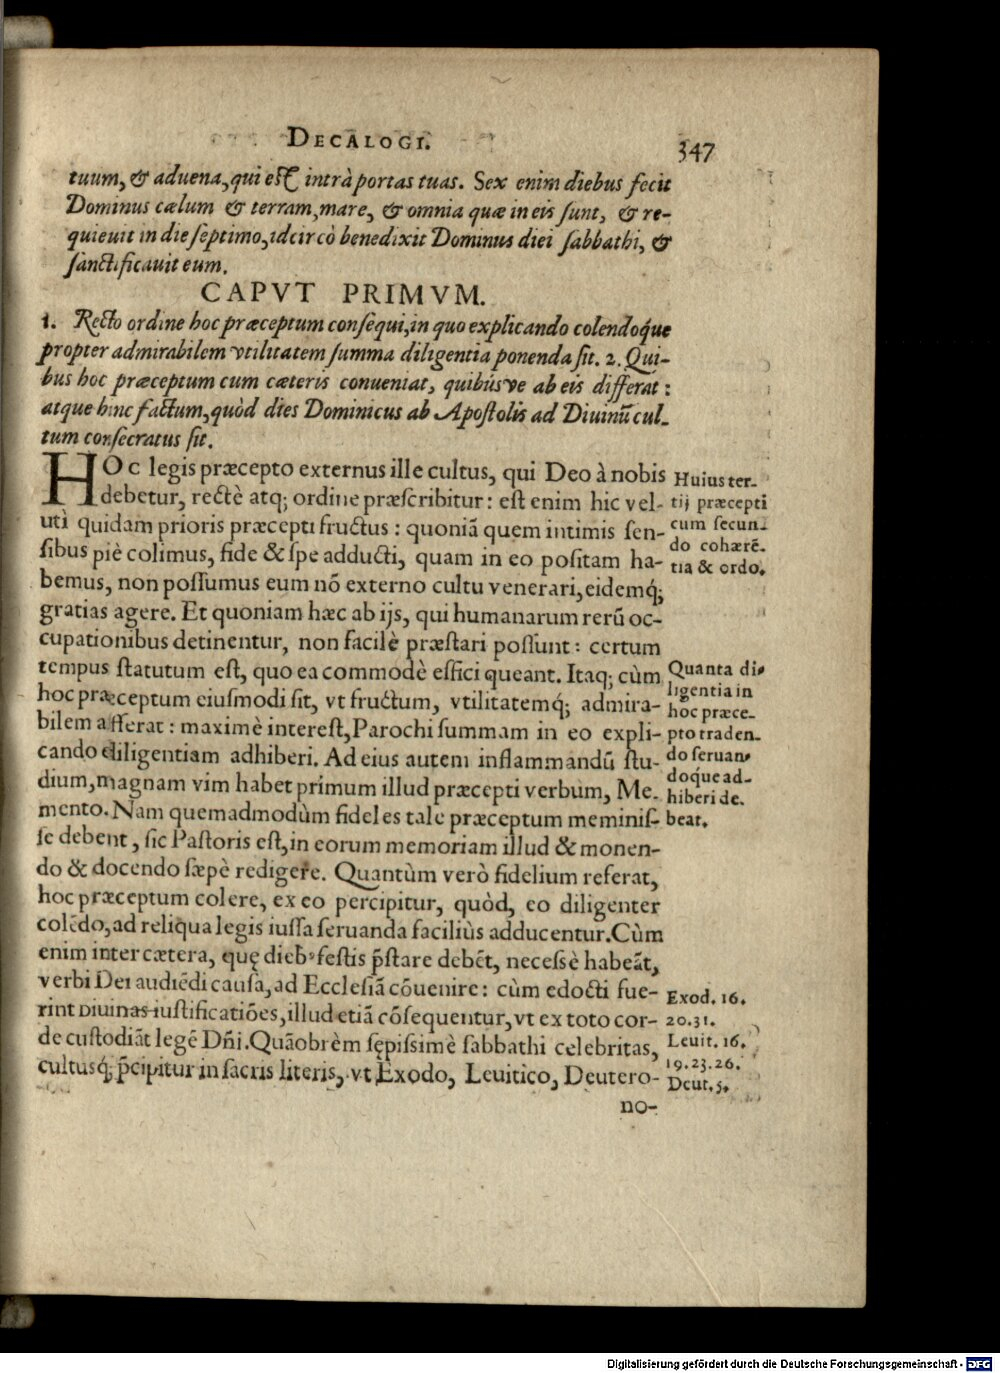 DECALOGI.
347
tuum, & aduena, qui est intrà portas tuas. Sex enim diebus fecit
Dominus cælum & terram, mare, & omnia quæ in eis sunt, & re-
quieuit in die septimo, idcircò benedixit Dominus diei sabbathi, &
sanctificauit eum.
CAPVT PRIMVM.
1. Recto ordine hoc præceptum consequi, in quo explicando colendoq́ue
propter admirabilem vtilitatem summa diligentia ponenda sit. 2. Qui-
bus hoc præceptum cum cæteris conueniat, quibúsve ab eis differat:
atque hinc factum, quòd dies Dominicus ab Apostolis ad Diuinũ cul-
tum consecratus sit.
HOC legis præcepto externus ille cultus, qui Deo à nobis
debetur, rectè atq; ordine præscribitur: est enim hic vel-
utì quidam prioris præcepti fructus: quoniã quem intimis sen-
sibus piè colimus, fide & spe adducti, quam in eo positam ha-
bemus, non possumus eum nõ externo cultu venerari, eidemq́;
gratias agere. Et quoniam hæc ab ijs, qui humanarum rerũ oc-
cupationibus detinentur, non facilè præstari possunt: certum
tempus statutum est, quo ea commodè effici queant. Itaq; cùm
hoc præceptum eiusmodi sit, vt fructum, vtilitatemq́; admira-
bilem afferat: maximè interest, Parochi summam in eo expli-
cando diligentiam adhiberi. Ad eius autem inflammandũ stu-
dium, magnam vim habet primum illud præcepti verbum, Me-
mento. Nam quemadmodùm fideles tale præceptum meminis-
se debent, sic Pastoris est, in eorum memoriam illud & monen-
do & docendo sæpè redigere. Quantùm verò fidelium referat,
hoc præceptum colere, ex eo percipitur, quòd, eo diligenter
colẽdo, ad reliqua legis iussa seruanda faciliùs adducentur. Cùm
enim inter cætera, quę dieb⁹ festis p̃stare debẽt, necessè habeãt,
verbi Dei audiẽdi causa, ad Ecclesiã cõuenire: cùm edocti fue-
rint Diuinas iustificatiões, illud etiã cõsequentur, vt ex toto cor-
de custodiãt legẽ Dñi. Quãobrèm sępissimè sabbathi celebritas,
cultusq́; p̃cipitur in sacris literis, vt Exodo, Leuitico, Deutero-
no-
Huius ter-
tij præcepti
cum secun-
do cohærẽ-
tia & ordo.
Quanta di-
ligentia in
hoc præce-
pto traden-
do seruan-
doque ad-
hiberi de-
beat.
Exod. 16.
20.31.
Leuit. 16.
19.23.26.
Deut. 5.
Digitalisierung gefördert durch die Deutsche Forschungsgemeinschaft - DFG